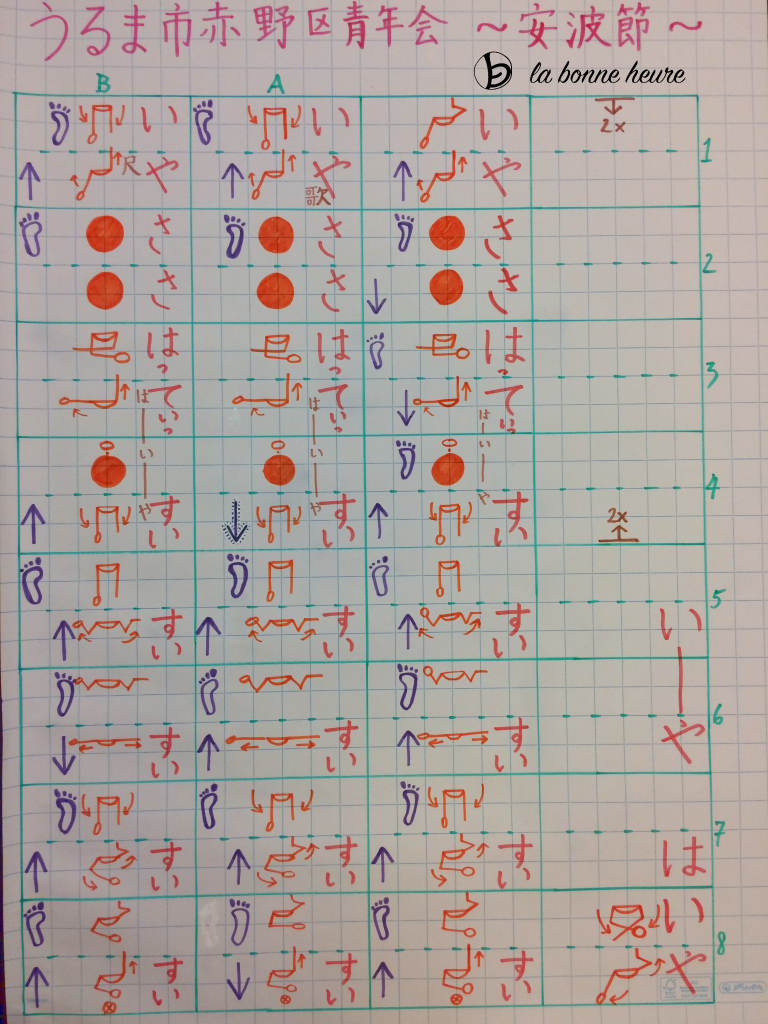 うるま市赤野区青年会 ～安波節～
la bonne heure
B A
い い い 2x
1
や や や
尺 歌
さ さ さ
2
さ さ さ
はっ はっ はっ
3
ていっ ていっ ていっ
はいや はいや はいや
4
すい すい すい 2x
5
すい すい すい い
6
すい すい すい や
7
すい すい すい は
い
8
すい すい すい や